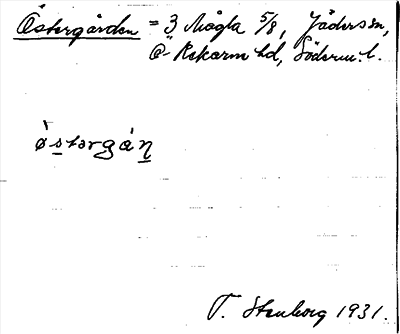 Östergården = 3 Mågla 5/8, Jäders sn,
Ö-Rekarne hd, Söderm. l.
östərgà̊n
T. Stenborg 1931.